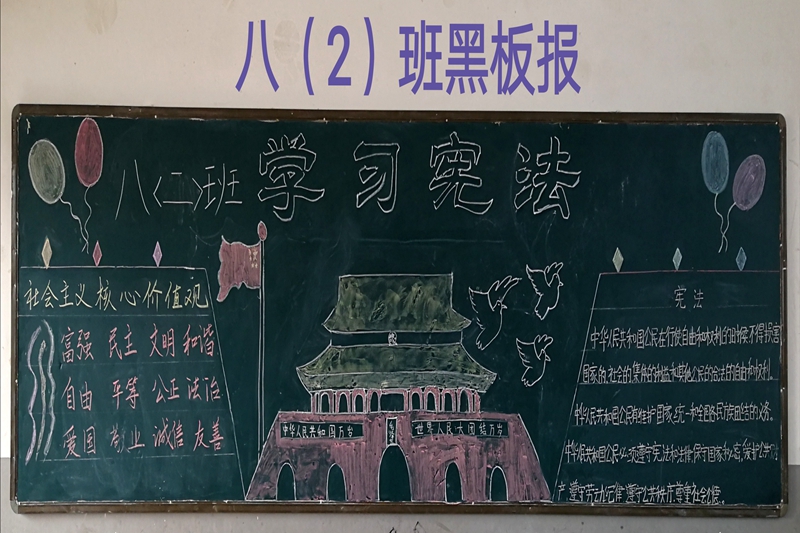 八（2）班黑板报
八〈二〉班 学习宪法
社会主义核心价值观
富强 民主 文明 和谐
自由 平等 公正 法治
爱国 敬业 诚信 友善
中华人民共和国万岁
世界人民大团结万岁
宪法
中华人民共和国公民在行使自由和权利的时候不得损害
国家的社会的集体的利益和其他公民的合法的自由和权利.
中华人民共和国公民有维护国家统一和全国各民族团结的义务.
中华人民共和国公民必须遵守宪法和法律,保守国家秘密,爱护公共财
产,遵守劳动纪律,遵守公共秩序,尊重社会公德.